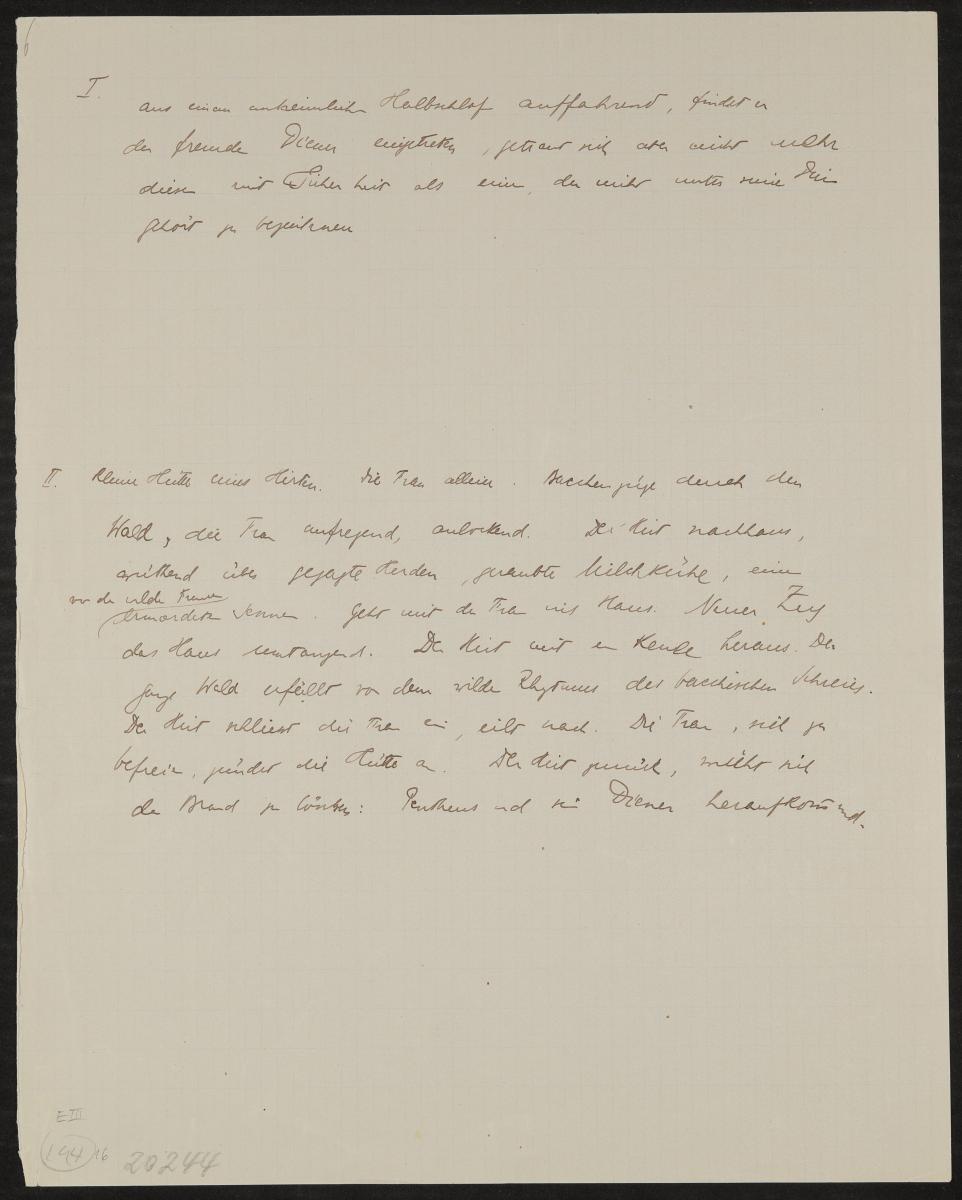 I.
aus einem unheimlichen Halbschlaf auffahrend, findet er
den fremden Diener eingetreten, getraut sich aber nicht mehr
diesen mit Sicherheit als einen, der nicht unter seine Diener
gehört zu bezeichnen
II. Kleine Hütte eines Hirten. Die Frau allein. Bacchenzüge durch den
Wald, die Frau aufregend, anlockend. Der Hirt nachhaus,
wüthend über gejagte Herden, geraubte Milchkühe, einen
von den wilden Frauen
ermordeten Sennen. Geht mit der Frau ins Haus. Neuer Zug
das Haus umtanzend. Der Hirt mit einer Keule heraus. Der
ganze Wald erfüllt von dem wilden Rhytmus des bacchischen Schreies.
Der Hirt schliesst die Frau ein, eilt nach. Die Frau, sich zu
befreien, zündet die Hütte an. Der Hirt zurück, müht sich
den Brand zu löschen: Pentheus und sein Diener heraufkommend.
E III
194 16
20244